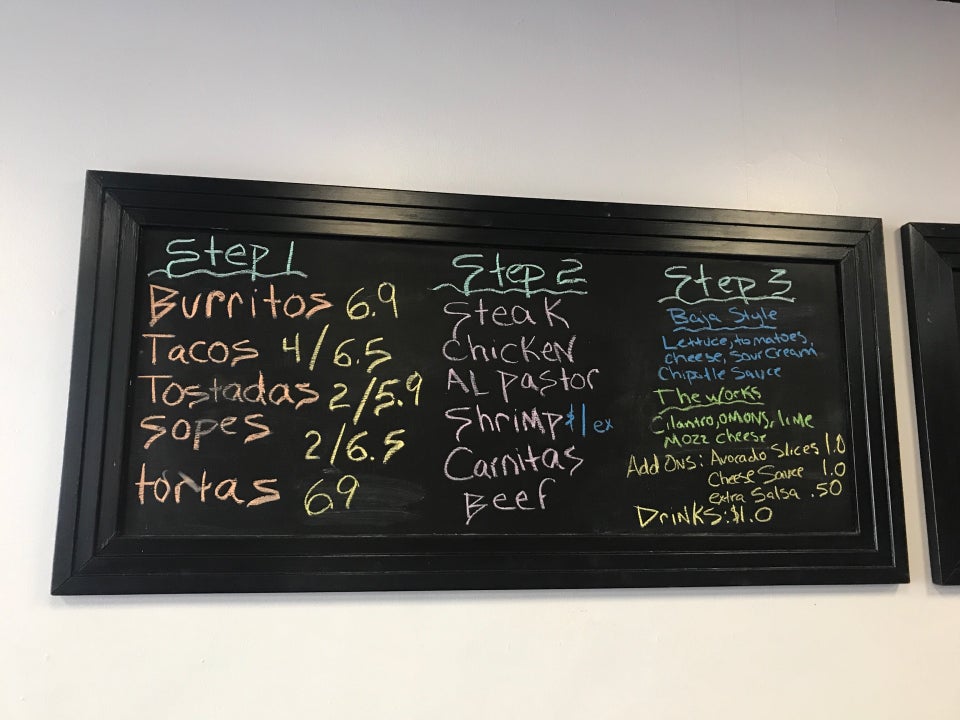 Step 1
Burritos 6.9
Tacos 4/6.5
Tostadas 2/5.9
Sopes 2/6.5
tortas 69
Step 2
Steak
Chicken
AL pastor
Shrimp $1 ex
Carnitas
Beef
Step 3
Baja Style
Lettuce, tomatoes,
cheese, sour cream
Chipotle Sauce
The works
Cilantro, onions, lime
Mozz cheese
Add Ons: Avocado Slices 1.0
Cheese Sauce 1.0
extra Salsa .50
Drinks: $1.0